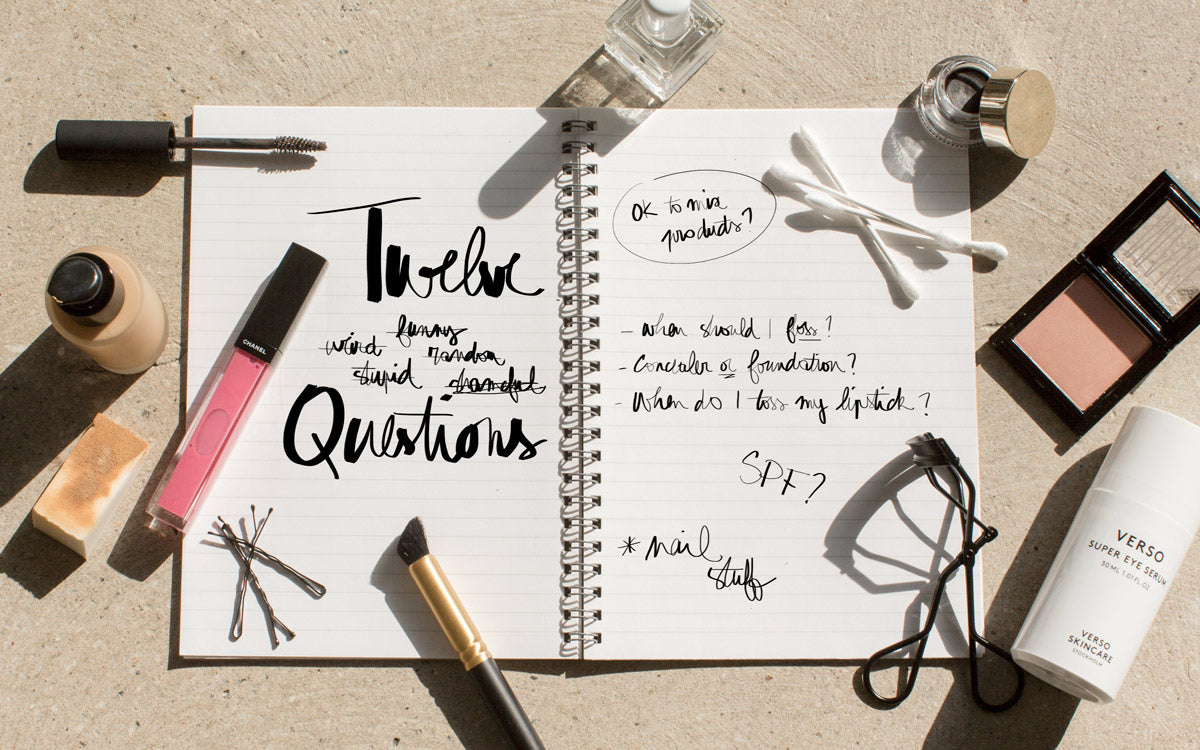 Twelve
funny
weird random
stupid shameful
Questions
OK to mix
products?
- when should I ?
- Concealer or foundation?
- When do I toss my lipstick?
SPF?
* nail
stuff
CHANEL
VERSO
SUPER EYE SERUM
30ML 1.01FL.OZ
VERSO
SKINCARE
STOCKHOLM